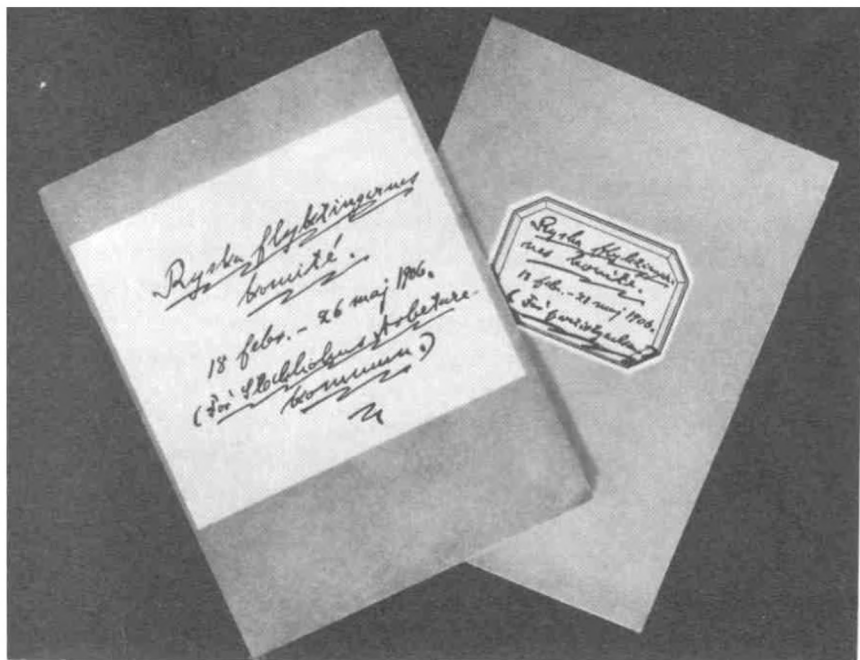 Ryska flyktingarnes
komité.
18 febr. – 26 maj 1906.
(För Stockholms Arbetare-
kommun.)
Ryska flyktingar-
nes komité.
18 febr. – 21 maj 1906.
(För